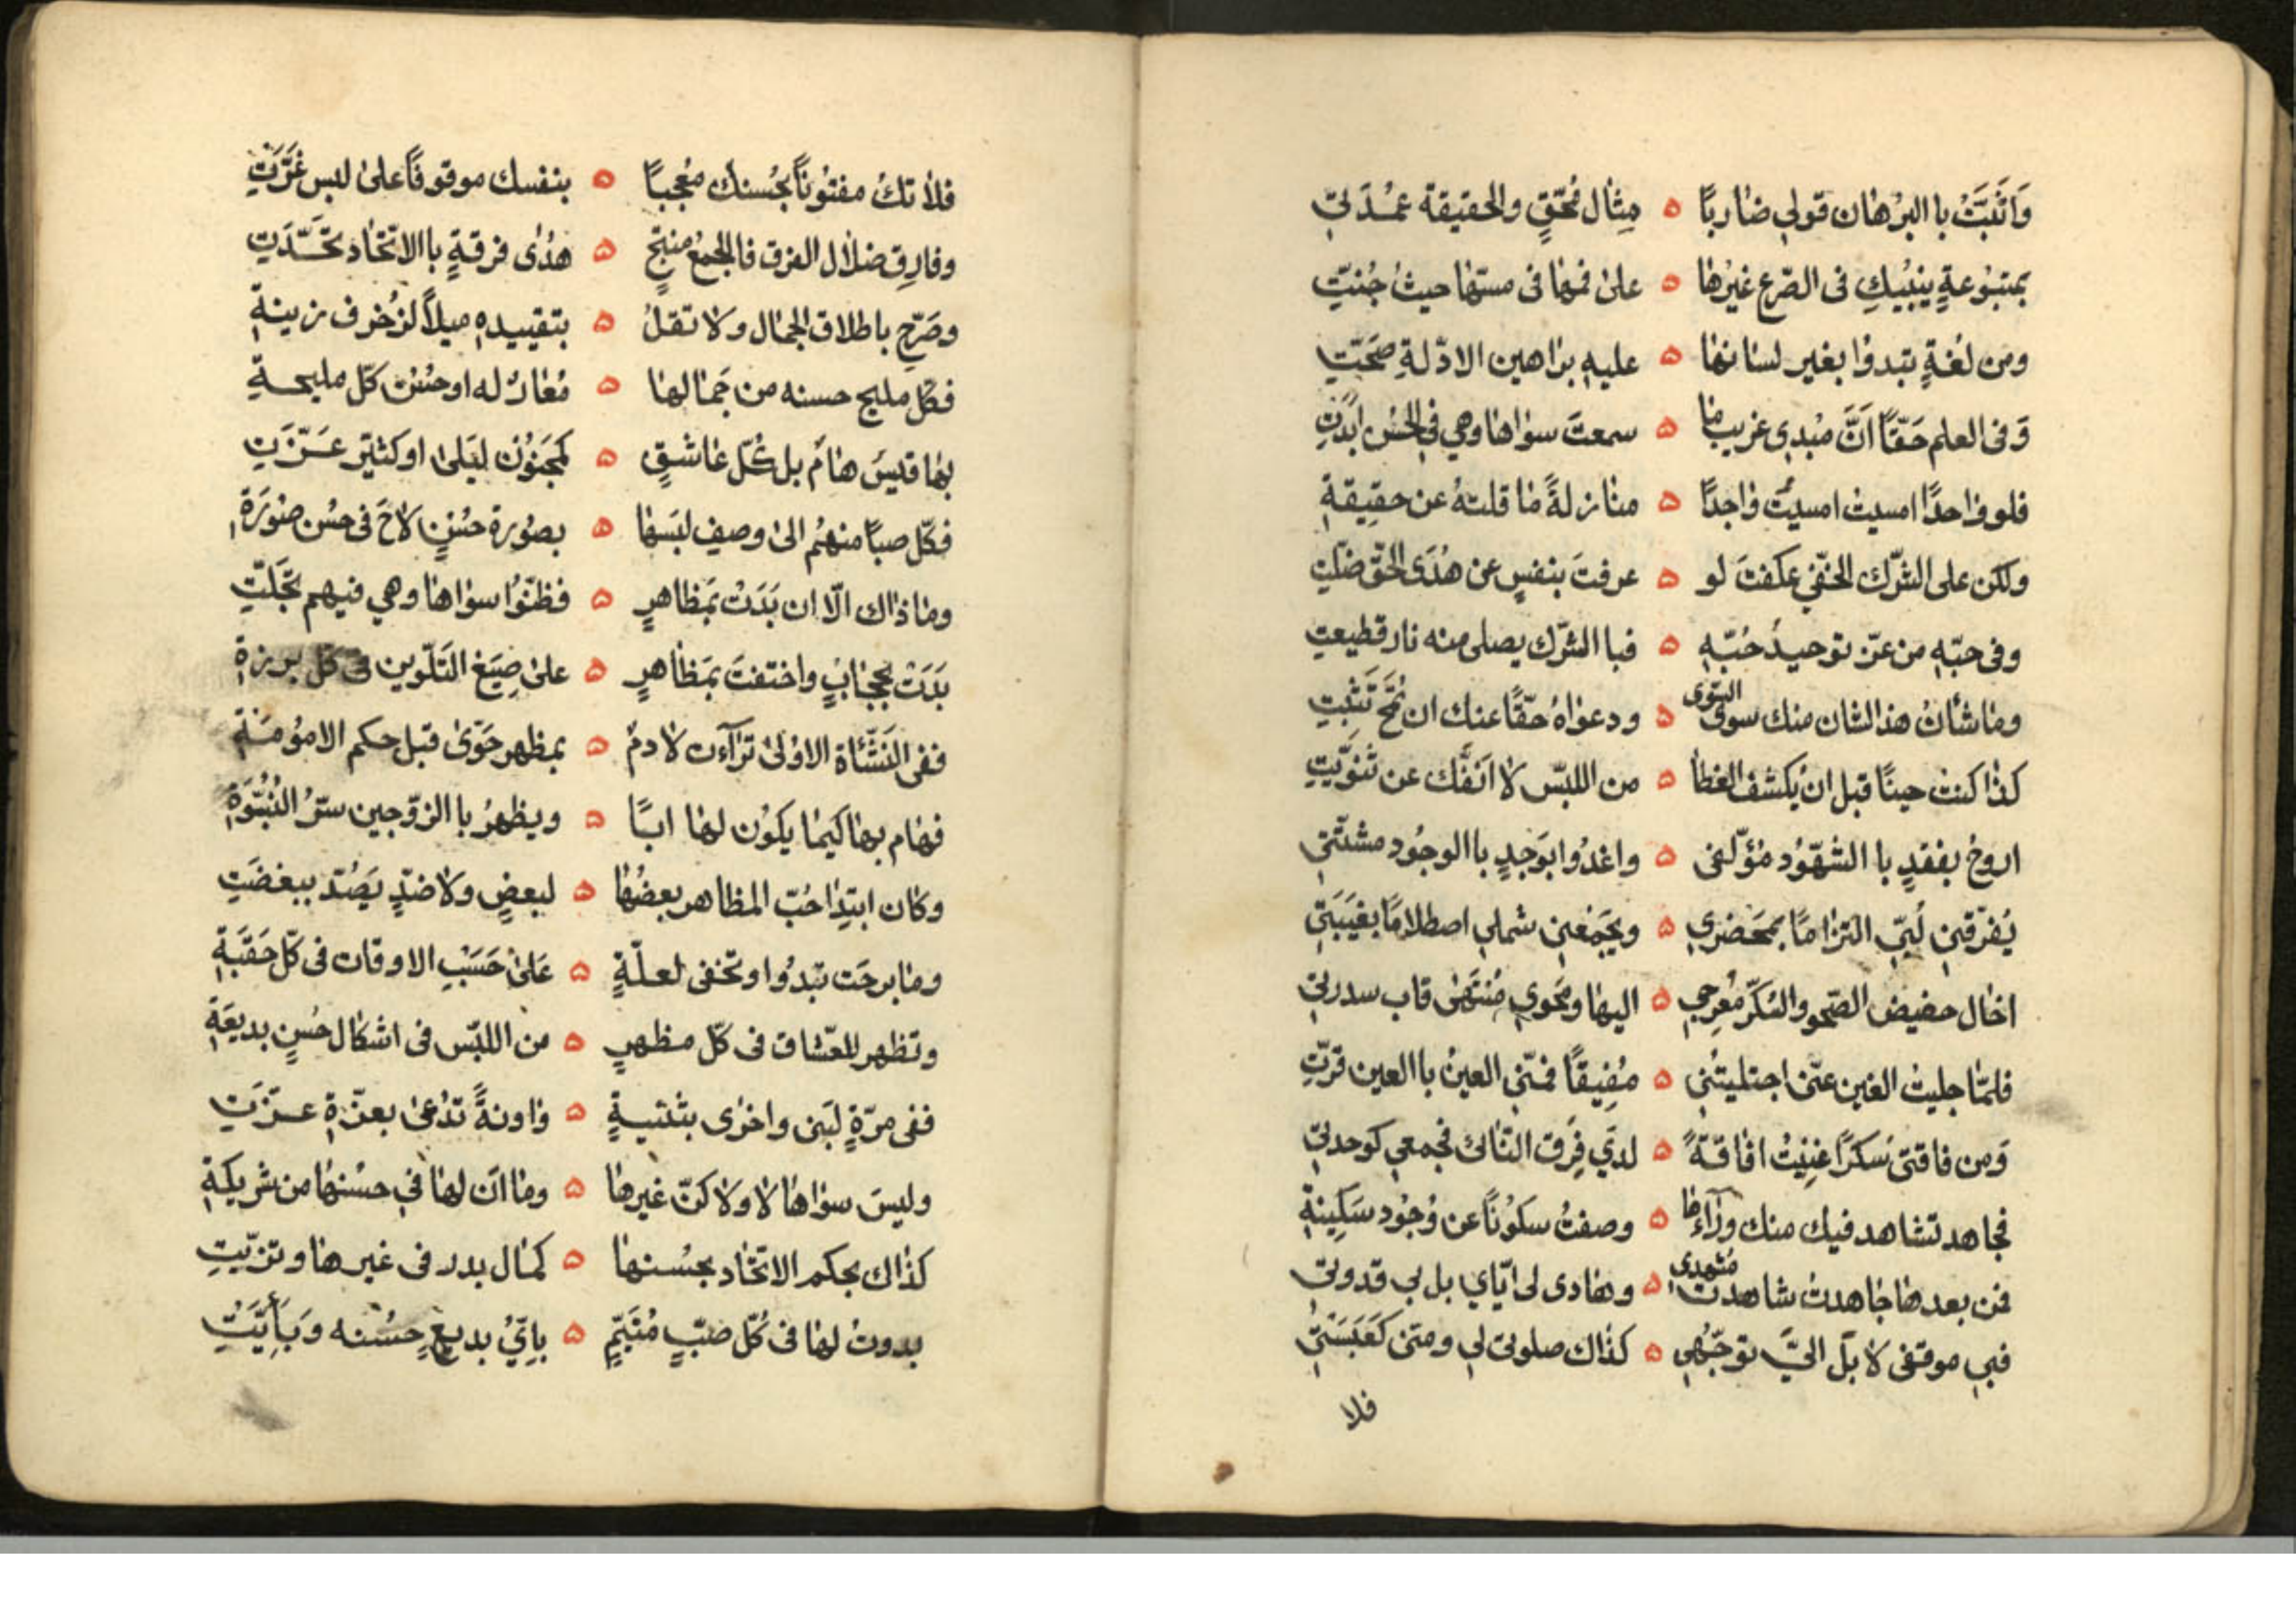 وَاَثْبَتَّ باالبرُهان قولي ضاربًا ه مِثال مُحَقّقٍ والحقيقة عمْدَتيِ
بمتبُوعةٍ ينبُيكِ فى الصّرع غيرُها ه على فمها فى مسّها حيث جُنتّتِ
ومن لغةٍ تبدوُا بغير لسانها ه عليهِ براهين الادّلةِ صحّتِ
وَفى العلم حَقّاً اَنَّ مبْدي غريب ما ه سمعتَ سواها وهي في الحسّ ابدَتِ
فلو واحدًا امسيت امسيتَ واجدًا ه منازلةً ما قلتهُ عن حقيقةِ
ولكن على الشّرك الخفّي عكفتَ لو ه عرفتَ بنفسٍ عن هُدَى الحقّ ضلّتِ
وفى حبّهِ من عزّ توحيدُ حُبّهِ ه فباالشّرك يصلى منه نار قطيعتِ
وما شأنُ هذ الشان منك سوى السّوى ه ودعواهُ حقّاً عنك ان تُمْحَ تَثْبتِ
كذا كنت حينًا قبل ان يكشف الغطا ه من اللبّس لا انفَّك عن ثنَويَّتِ
اروحُ بفقدٍ باالشهّوُد مؤلّفى ه واغدُوا بوَجدٍ باالوجُود مشتّتي
يُفرّقني لُبّي التزامًا بمَحَضري ه ويجَمْعني شملي اصطلامًا بغَيبَتي
اخال حضيض الصّحو والسُكّر مُعِرجي ه اليها ومحوي مُنتَهى قاب سدرتي
فلمّا جليتُ الغين عنّى اجتليتُني ه مُفِيقًا فمنّى العينُ باالعين قرّتِ
وَمن فاقتى سَكرًا غنِيْتُ افاقةً ه لديَ فِرَق الثّانى فجمعي كوحدتي
فجاهد تشاهد فيك منك وراءَ ما ه وصفتُ سكوُنًا عن وُجُود سَكِينةِ
فمن بعد ما جاهدتُ شاهدتُ مشهدي ه وهادى لى ايّاي بل بي قدوتى
فبي موقفى لا بل اليَّ توجّهُي ه كذاك صلوتي لي ومنّى كَعَبَتي
فلا
فلا تكُ مفتوُناً بحُسنك معُجبًا ه بنفسك موقوفًا على لبس غرَّتِ
وفارِق ضلال الفرق فاالجمعُ منتجٌ ه هدُى فرقةٍ باالاتّحاد تحَدّتِ
وصَرّح باطلاق الجمال ولا تقلْ ه بتقييدهِ ميلاً لزُخرف زينةِ
فكلّ مليح حسنه من جَمالها ه مُعارٌ له او حُسْن كلّ مليحةِ
بها قيسُ هامَ بل كلّ عاشقٍ ه كمجنوُن ليَلى او كثيّر عَزّتِ
فكلّ صبًا منهُم الى وصف لبَسها ه بصوُرة حُسْنٍ لاحَ فى حسُن صوُرَةِ
وما ذاك الّا ان بَدَتْ بمَظاهرٍ ه فظنّوُا سواها وهي فيهم تجَلّتِ
بَدَتْ بحجابٍ واختفتَ بمَظاهرٍ ه على صِيَغ التَلّوين فى كلّ برزةِ
ففى النَشّئاة الاوُلى تراَءت لادمٌ ه بمظهر حَوّى قبل حكم الامُومَةِ
فهام بها كَيما يكوُن لها ابًا ه ويظهرُ باالزوّجين سرّ البُنُوّةِ
وكان ابتدِا حُبّ المظاهر بعضُها ه لبعضٍ ولا ضدٍّ يَصُدّ ببغضَتِ
وما برحَت تبدُوا وتخفى لعلّةٍ ه عَلى حَسَبِ الاوقات فى كلّ حَقَبَةِ
وتظهر للعّشاق فى كلّ مظهرٍ ه من اللبّس فى اشكال حُسنٍ بديعَةِ
ففى مرّةٍ لبَنى واخرى بثنيةٍ ه واونةً تدُعى بعزّةِ عزّتِ
وليسَ سواها لا ولا كنّ غيرها ه وما اَن لها في حسْنها من شريكةِ
كذاك بحكم الاتّحاد بحسُنها ه كما ل بدر فى غيرها وتزيّتِ
بدوتُ لها فى كُلّ صبّ مُتيّمٍ ه بايّ بديع حسُنه وَباَيّتِ